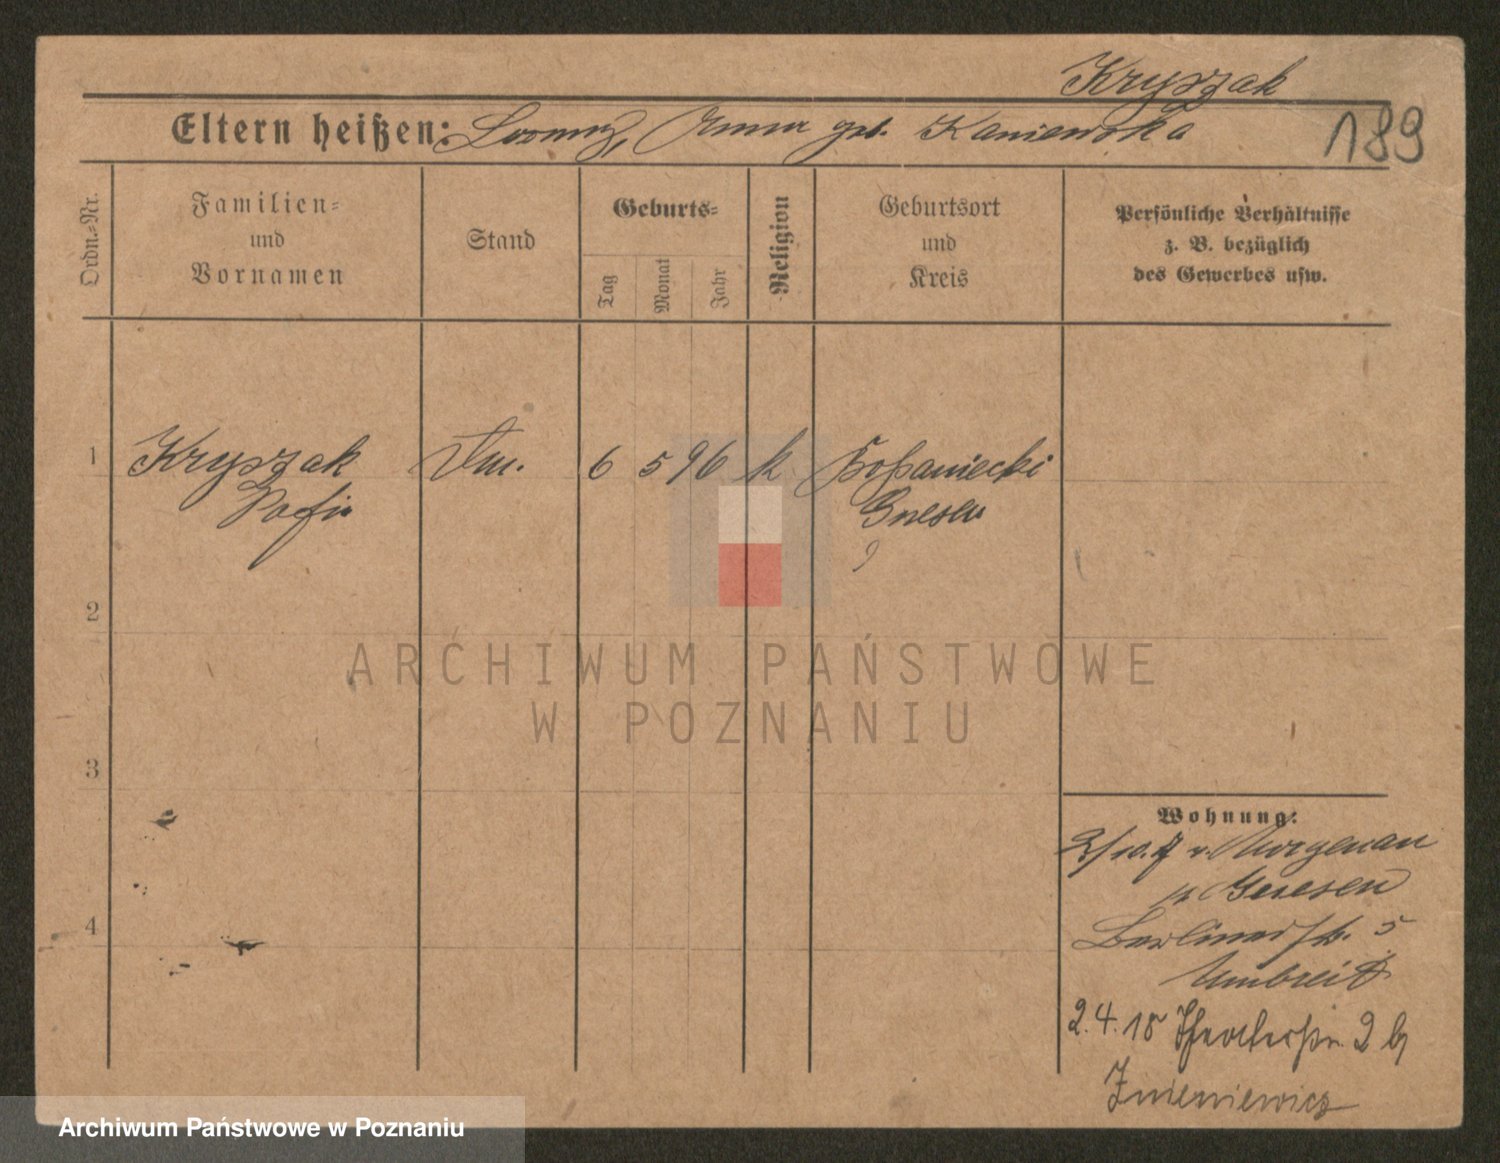 Kryszak
Eltern heißen: Lorenz, Anna geb. Kaniewska
189
Ordn.=Nr.
Familien=
und
Vornamen
Stand
Geburts=
Tag
Monat
Jahr
Religion
Geburtsort
und
Kreis
Persönliche Verhältnisse
z. B. bezüglich
des Gewerbes usw.
1
Kryszak
Sofie
6 5 96 k
Gnesen
2
3
4
ARCHIWUM PAŃSTWOWE
W POZNANIU
Wohnung:
v. Morgenau
Gnesen
Berlinerstr. 5
Umbreit
2.4.18 Theaterstr. 2 b/
Zmieniewicz
Archiwum Państwowe w Poznaniu